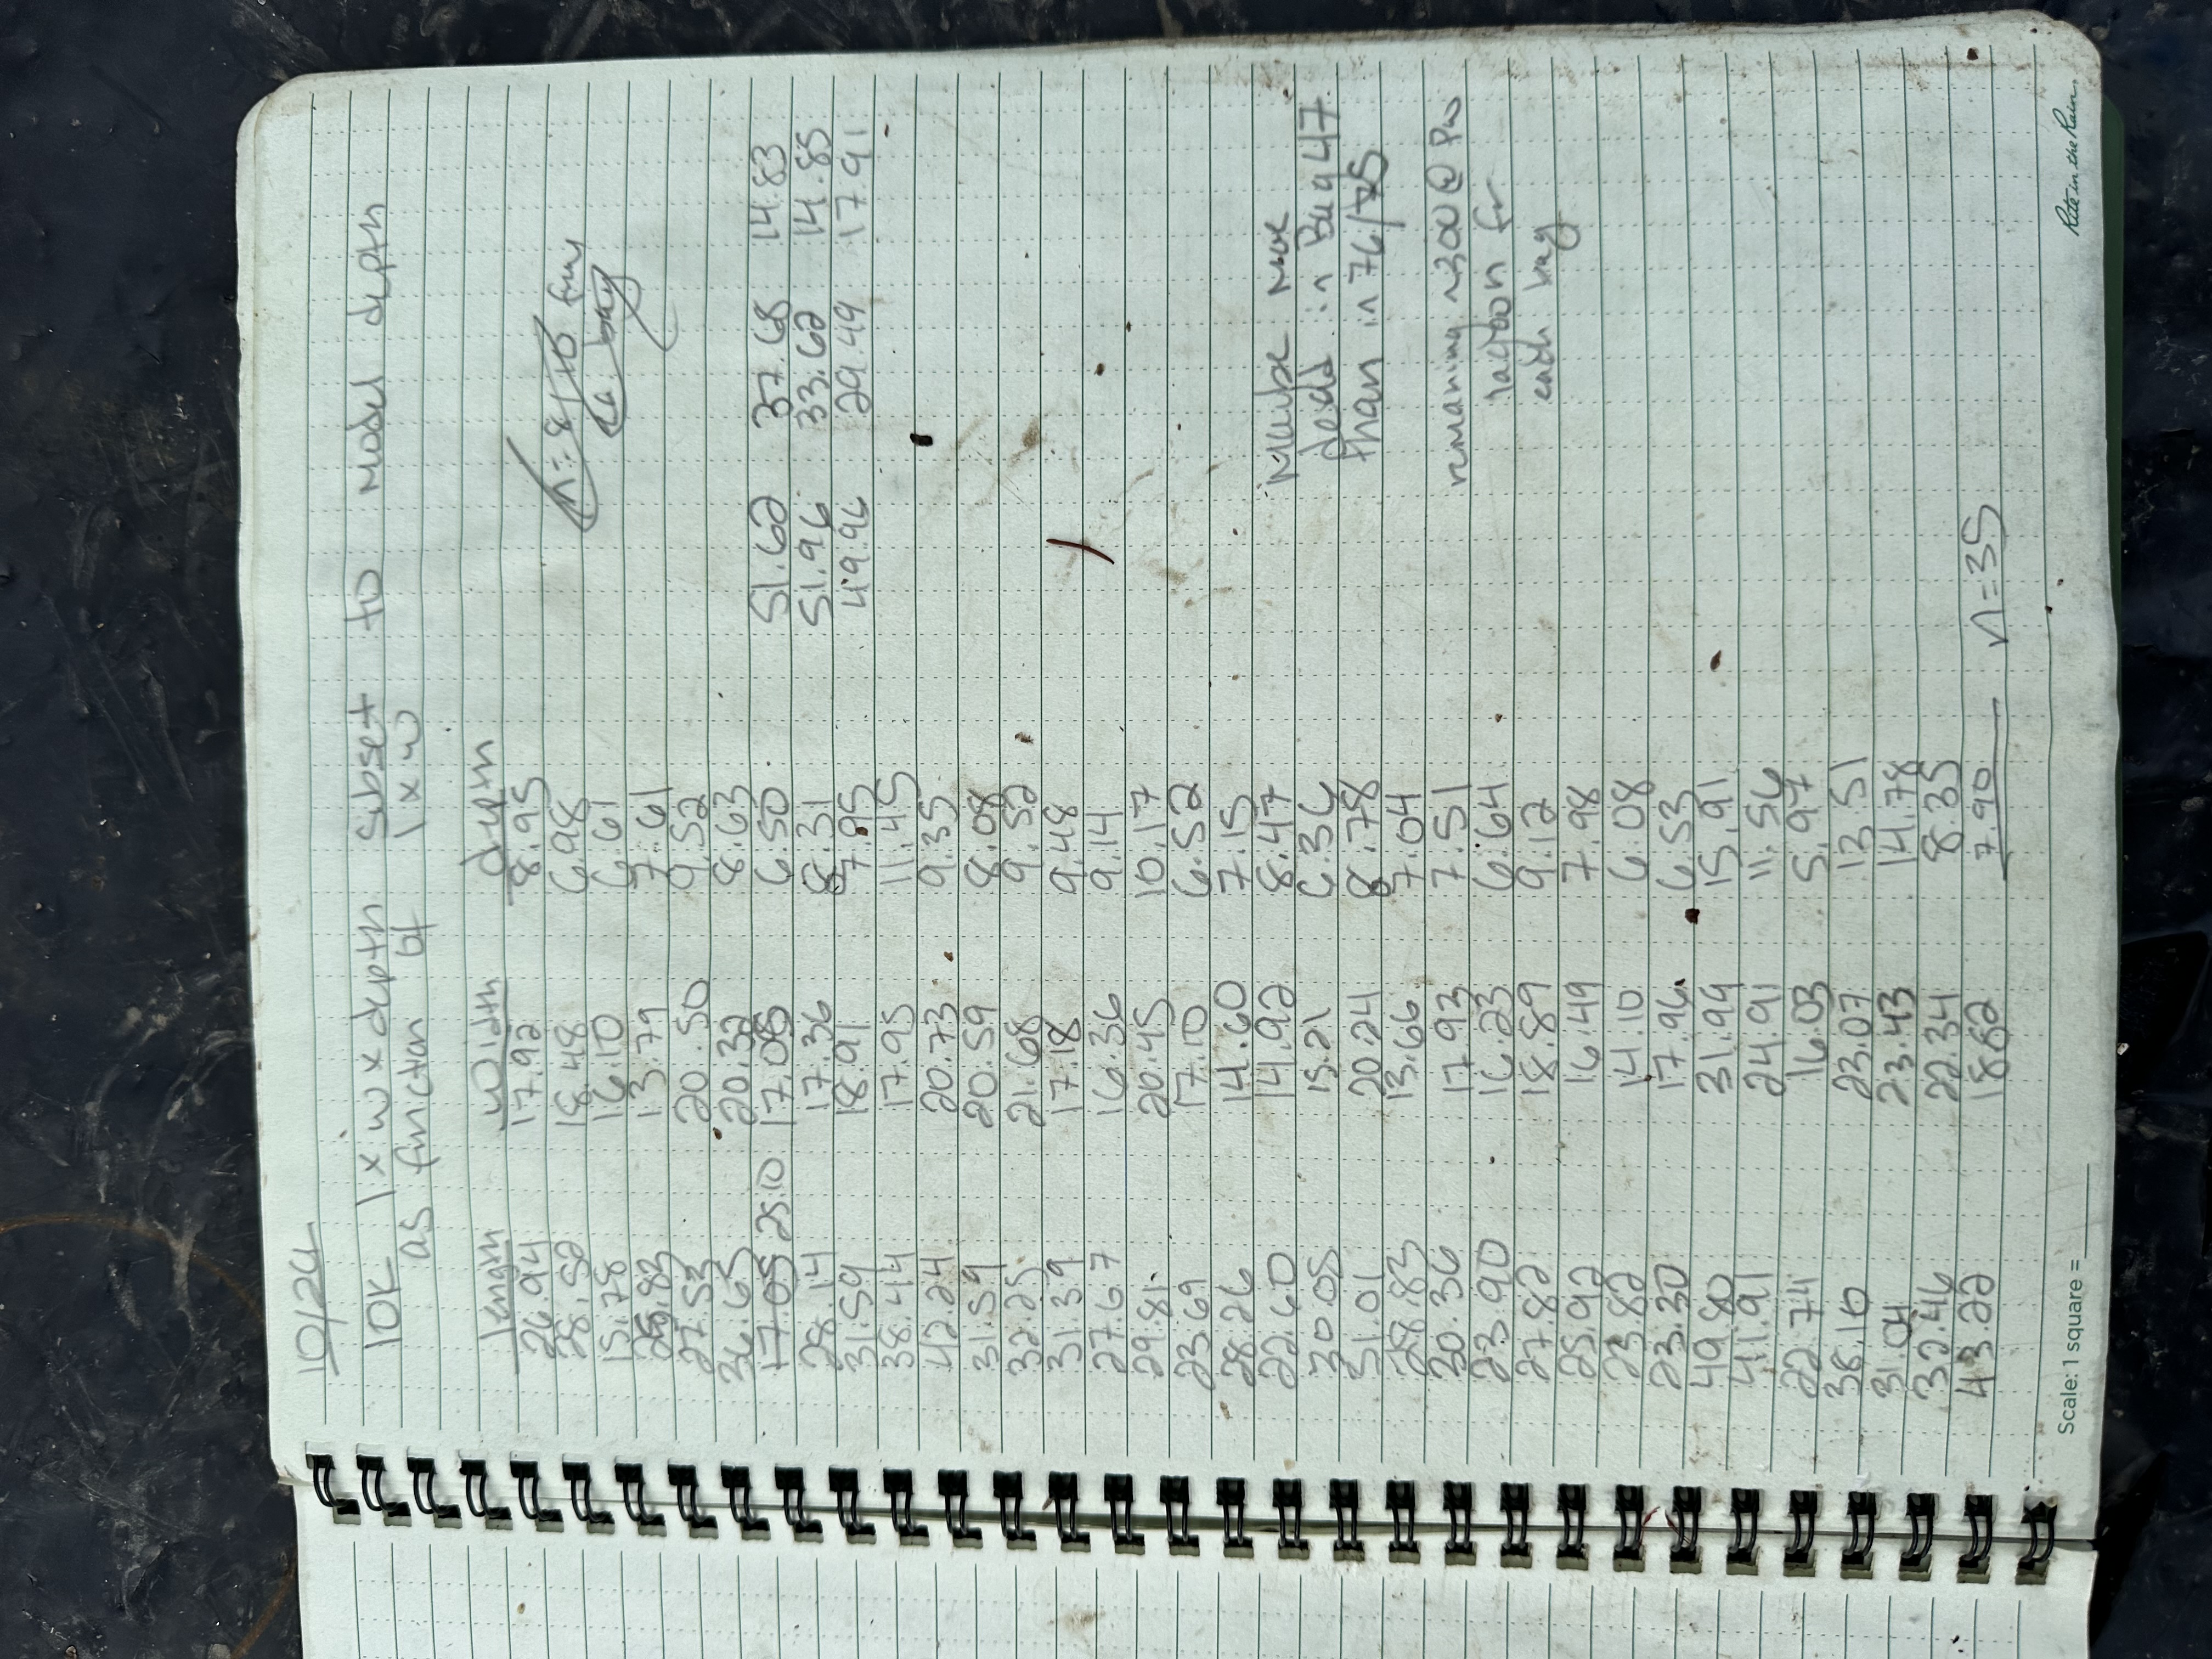 10/24
10K l x w x depth subset to model depth
as function of l x w
length width depth
26.94 17.92 8.95
28.52 18.48 6.98
n=8/10 from
ea. bag
15.78 16.10 6.61
28.83 13.79 7.61
27.53 20.50 9.52
36.65 20.32 8.63
17.05 25.10 17.05 6.50 51.62 37.68 14.83
28.14 17.36 8.31 51.96 33.62 14.85
31.59 18.91 7.95 49.96 29.49 17.91
38.44 17.95 11.45
42.24 20.73 9.35
31.59 20.59 8.08
32.25 21.68 9.52
31.39 17.18 9.48
27.67 16.36 9.14
29.81 20.45 10.17
23.69 17.10 6.52
28.26 14.60 7.15
22.60 14.92 8.47
30.05 15.21 6.36
31.01 20.24 8.78
28.83 13.66 7.04
30.36 17.93 7.51
23.90 16.23 6.64
27.82 18.89 9.12
25.92 16.49 7.98
23.82 14.10 6.08
23.30 17.96 6.53
49.80 31.99 15.91
41.91 24.91 11.56
22.74 16.03 5.97
38.10 23.07 13.51
31.04 23.43 14.78
32.46 22.34 8.35
43.22 18.82 7.90 n=35
Maybe more
dead in Bag 47
than in 76/75
remaining ~300 @ PW
lagoon fr
each bag
Scale: 1 square =
Rite in the Rain.